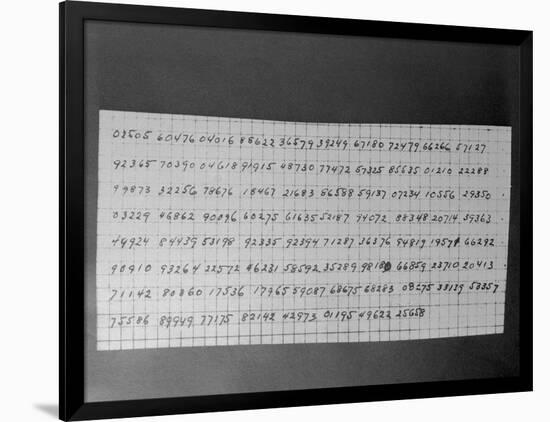 02505 60476 04016 85622 36579 39249 67180 72479 66266 57127
92365 70390 04618 91915 48730 77472 57325 85535 01210 22288
99873 32256 78676 18467 21683 56588 59137 07234 10556 29350
03229 46862 90096 60275 61635 52187 94072 88348 20714 39363
49924 84439 53198 92335 92394 71287 36376 94819 66292
90910 93264 22572 46231 58592 35289 66859 23710 20413
71142 80860 17536 17965 59087 68675 68283 08275 53357
75586 89949 77175 82142 42973 01195 49622 25658